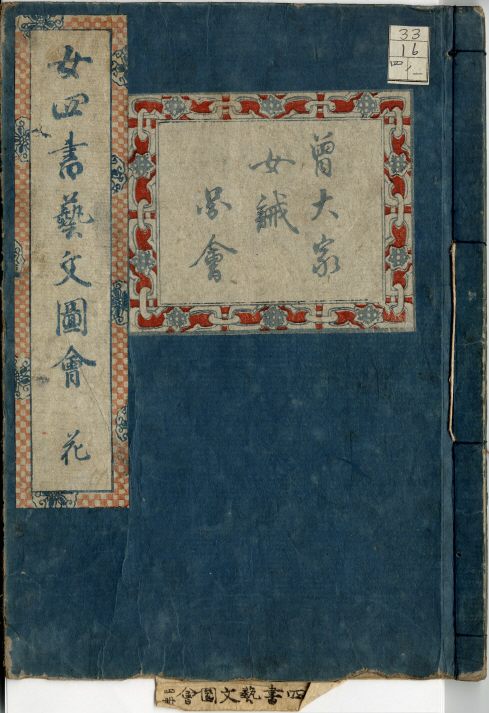 女四書藝文圖會 花
曹大家
女誡
啚會
33
16
四ノ一
四書藝文圖會 四冊